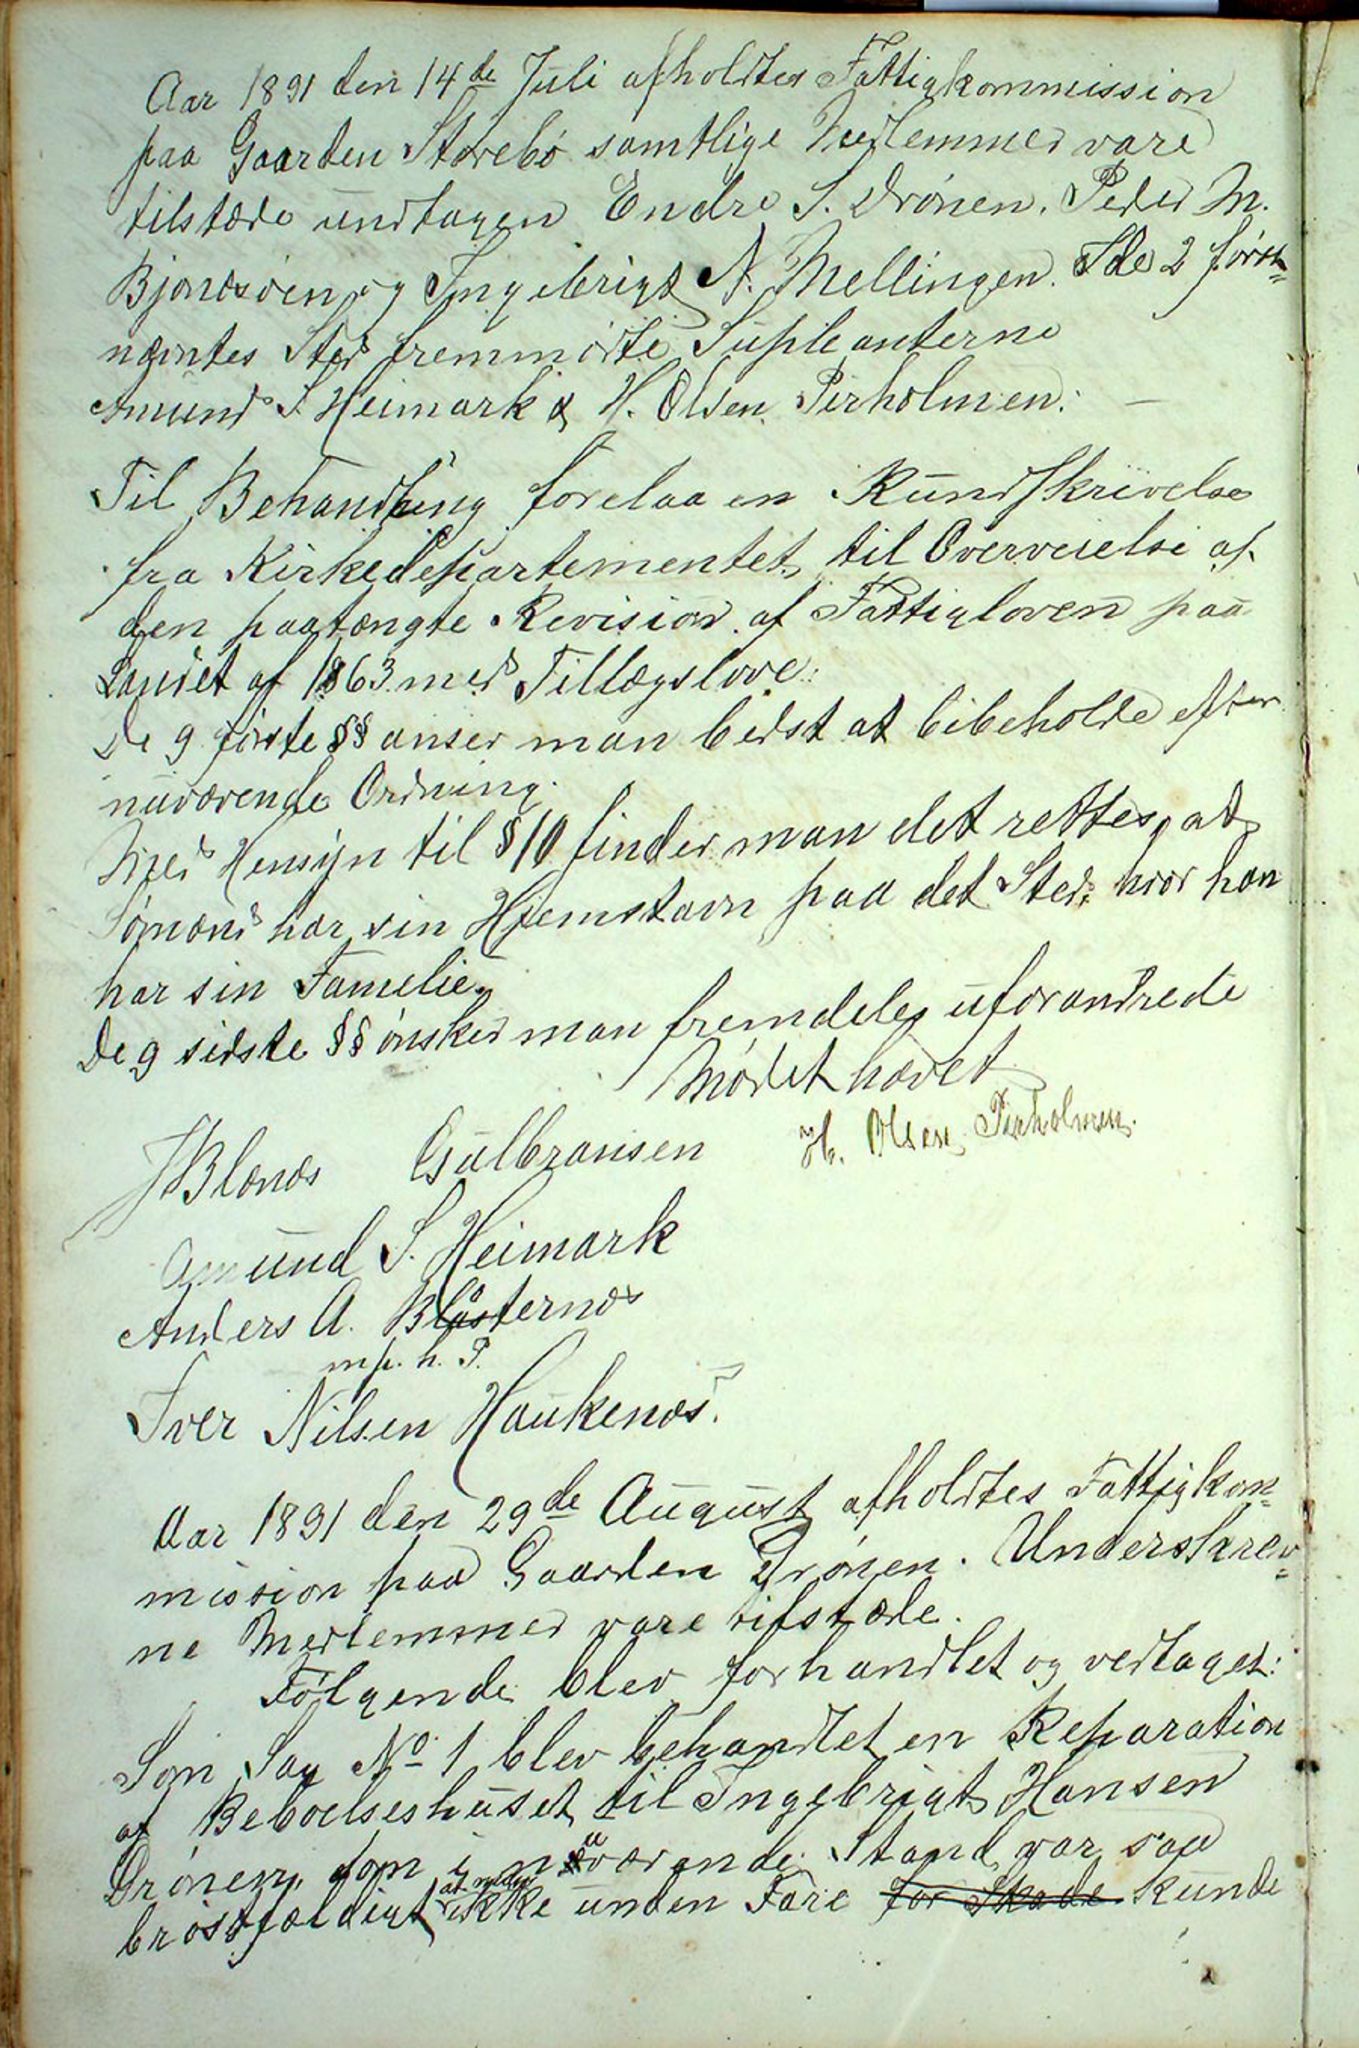 Aar 1891 den 14de Juli afholdtes Fattigkommission
paa Gaarden Storebø samtlige Medlemmer vare
tilstæde undtagen Endre S. Drønen. Peder M.
Bjonesøen og Ingebrigt N. Mellingen. I de 2 først-
nævntes Sted fremmødte Supleanterne
Amund S. Heimark & H. Olsen Pirholmen. —
Til Behandling forelaa en Rundskrivelse
fra Kirkedepartementet, til Overveielse af
den paatængte Revision af Fattigloven paa
Landet af 1863 med Tillægslove:
De 9 første §§ anser man bedst at bibeholde efter
nuværende Ordning.
Med Hensyn til § 10 finder man det rettest, at
Sømænd har sin Hjemstavn paa det Sted, hvor han
har sin Familie.
De 9 sidste §§ ønsker man fremdeles uforandrede
Mødet hævet
J Blænæs Gulbransen H. Olsen Pirholmen.
Amund S. Heimark
Anders A. Blåsternæs
m. p. h. P.
Iver Nilsen Haukenæs.
Aar 1891 den 29de August afholdtes Fattigkom-
mission paa Gaarden Drønen. Underskrev-
ne Medlemmer vare tilstæde.
Følgende blev forhandlet og vedtaget:
Som Sag No 1 blev behandlet en Reparation
af Beboelseshuset til Ingebrigt Hansen
Drønen, som i nuværende Stand var saa
brøstfældigt at Huset ikke uden Fare for Skade kunde